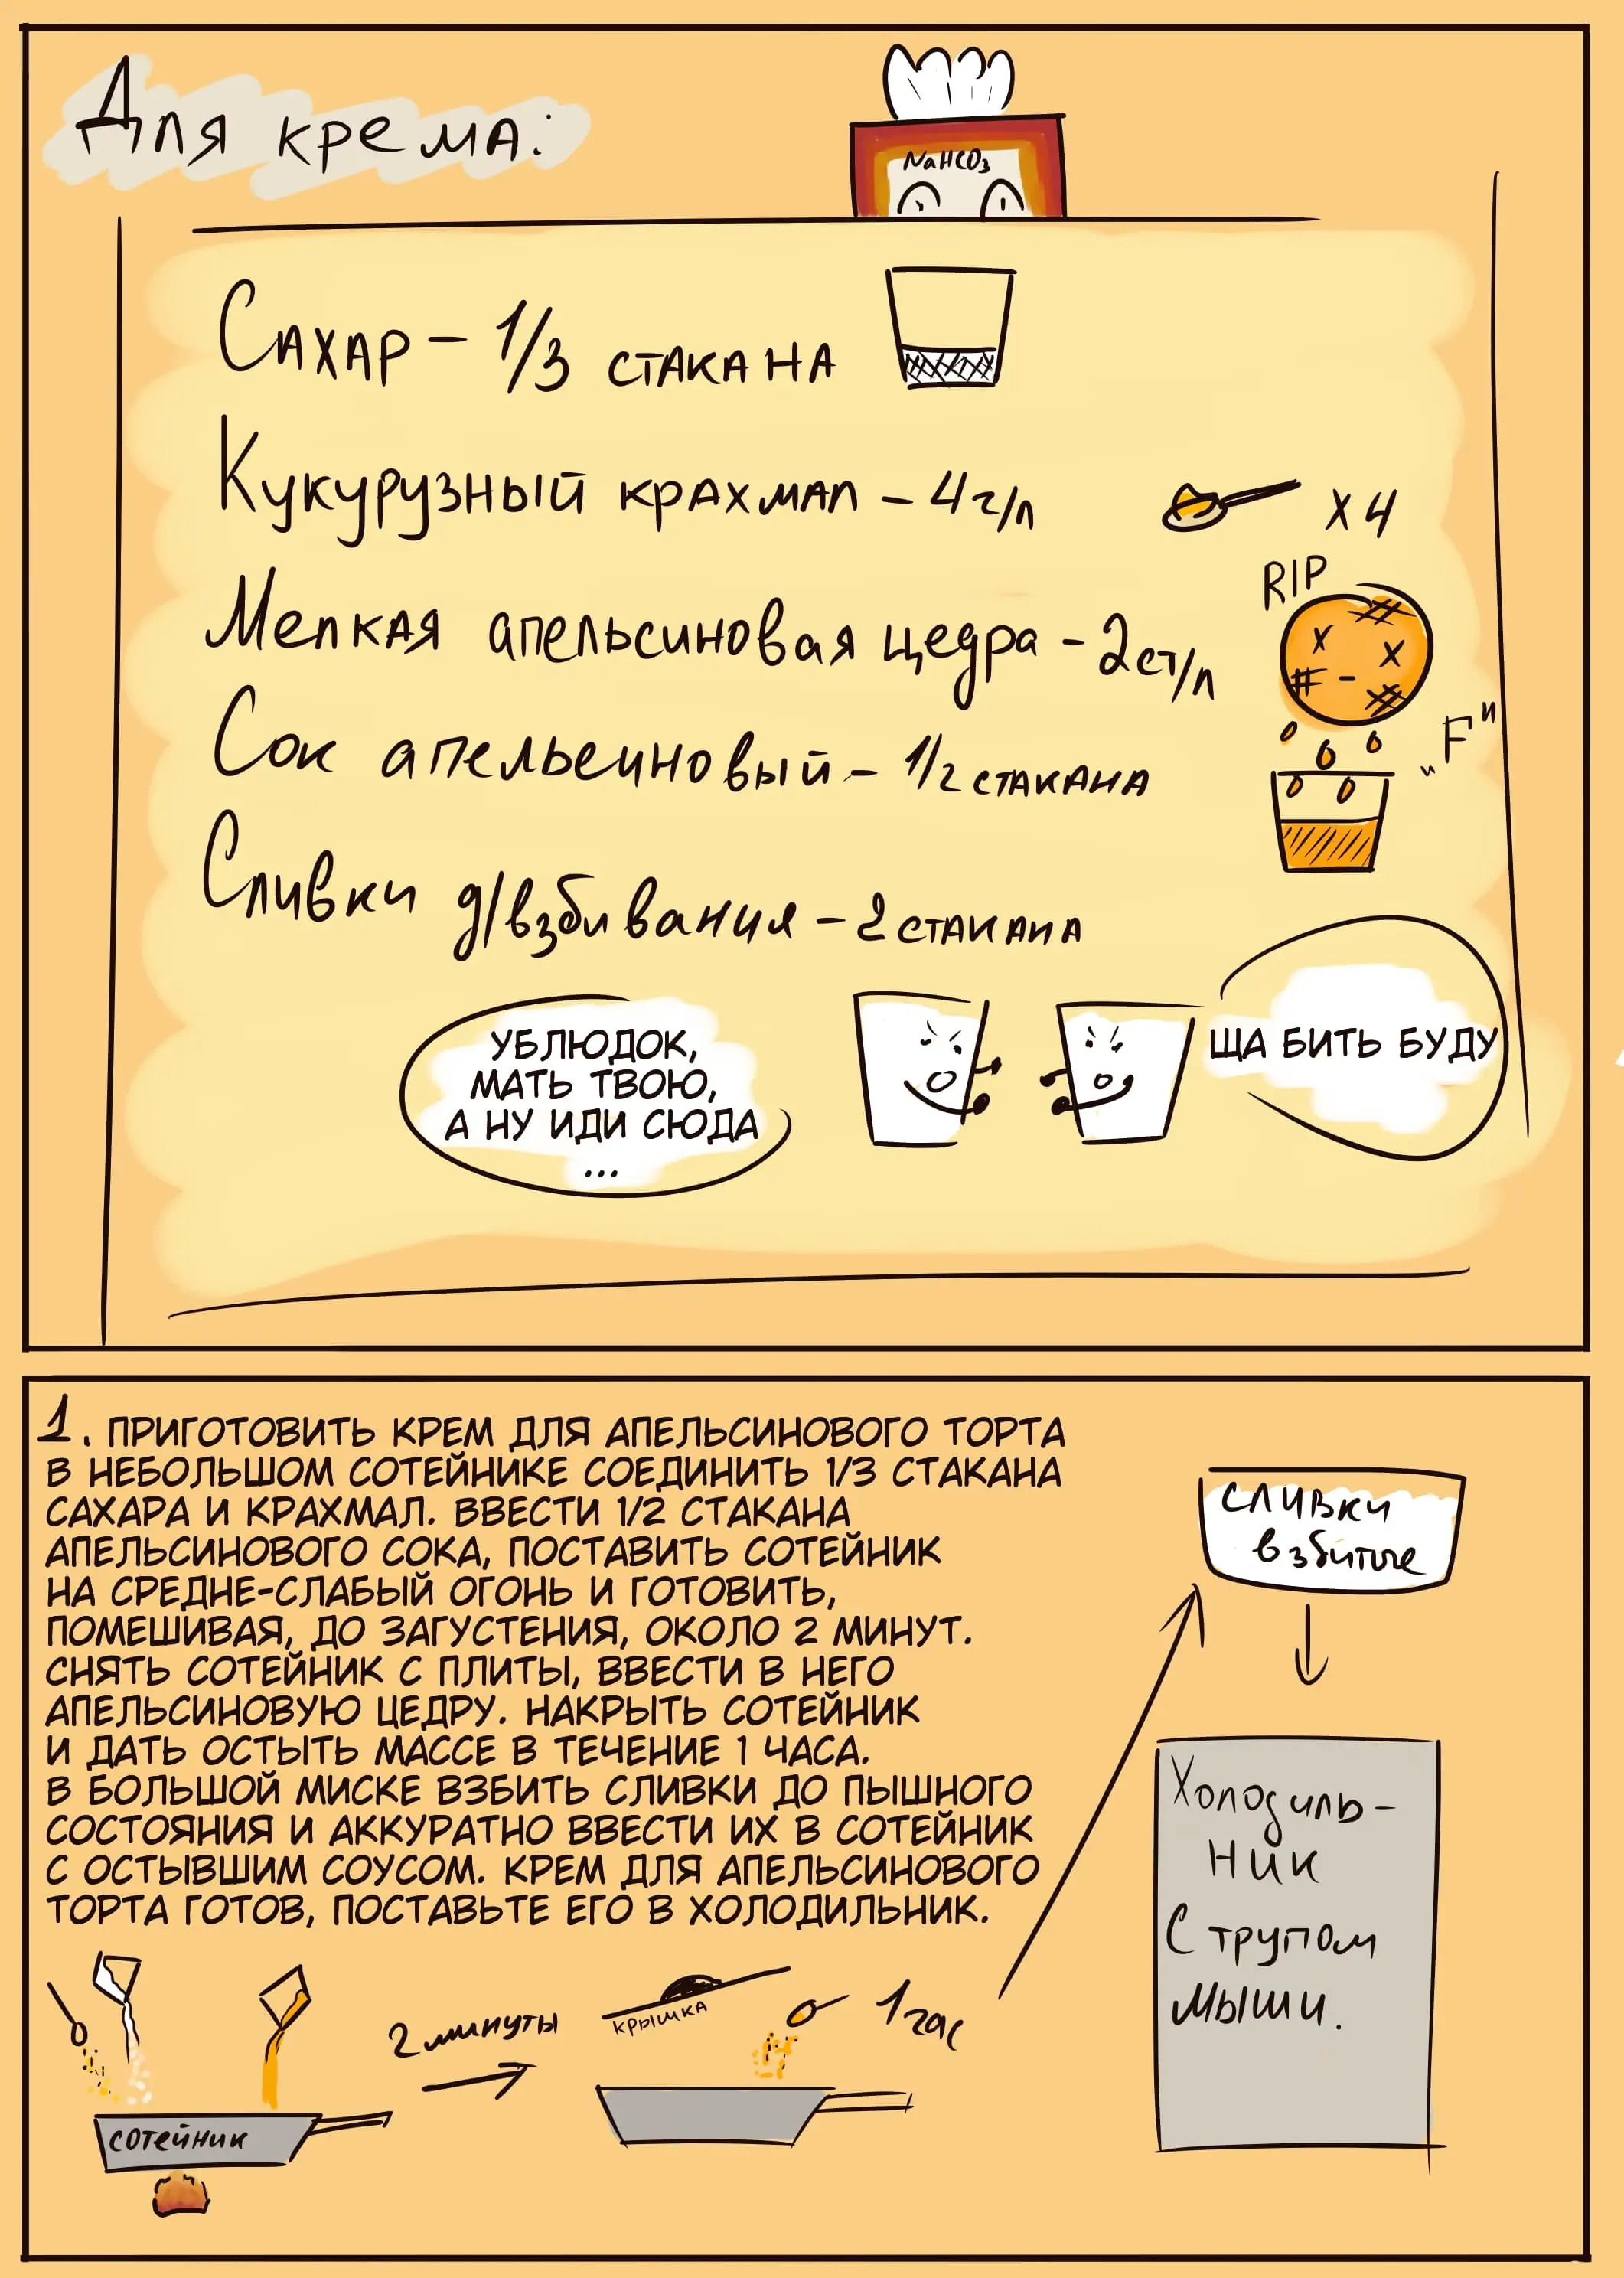 Для крема:
NaHCO3
Сахар – 1/3 стакана
Кукурузный крахмал – 4 ч/л
x 4
RIP
Мелкая апельсиновая цедра – 2 ст/л
"F"
Сок апельсиновый – 1/2 стакана
Сливки д/взбивания – 2 стакана
УБЛЮДОК,
МАТЬ ТВОЮ,
А НУ ИДИ СЮДА
...
ЩА БИТЬ БУДУ
1. ПРИГОТОВИТЬ КРЕМ ДЛЯ АПЕЛЬСИНОВОГО ТОРТА
В НЕБОЛЬШОМ СОТЕЙНИКЕ СОЕДИНИТЬ 1/3 СТАКАНА
САХАРА И КРАХМАЛ. ВВЕСТИ 1/2 СТАКАНА
АПЕЛЬСИНОВОГО СОКА, ПОСТАВИТЬ СОТЕЙНИК
НА СРЕДНЕ-СЛАБЫЙ ОГОНЬ И ГОТОВИТЬ,
ПОМЕШИВАЯ, ДО ЗАГУСТЕНИЯ, ОКОЛО 2 МИНУТ.
СНЯТЬ СОТЕЙНИК С ПЛИТЫ, ВВЕСТИ В НЕГО
АПЕЛЬСИНОВУЮ ЦЕДРУ. НАКРЫТЬ СОТЕЙНИК
И ДАТЬ ОСТЫТЬ МАССЕ В ТЕЧЕНИЕ 1 ЧАСА.
В БОЛЬШОЙ МИСКЕ ВЗБИТЬ СЛИВКИ ДО ПЫШНОГО
СОСТОЯНИЯ И АККУРАТНО ВВЕСТИ ИХ В СОТЕЙНИК
С ОСТЫВШИМ СОУСОМ. КРЕМ ДЛЯ АПЕЛЬСИНОВОГО
ТОРТА ГОТОВ, ПОСТАВЬТЕ ЕГО В ХОЛОДИЛЬНИК.
сотейник
2 минуты
крышка
1 час
сливки
взбитые
Холодиль-
ник
С трупом
мыши.